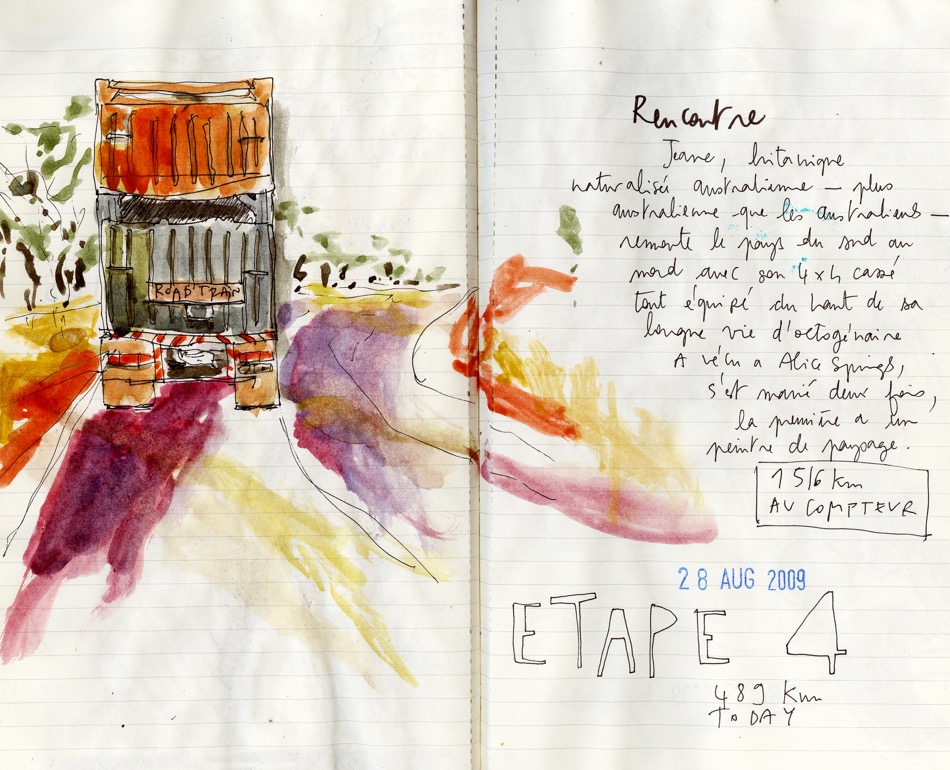 ROAD TRAIN
Rencontre
Jeane, britanique
naturalisée australienne — plus
australienne que les australiens —
remonte le pays du sud au
nord avec son 4x4 cassé
tout équipé du haut de sa
longue vie d'octogénaire
A vécu a Alice Springs,
s'est marié deux fois,
la première a un
peintre de paysage.
1516 km
AU COMPTEUR
28 AUG 2009
ETAPE 4
489 Km
TODAY